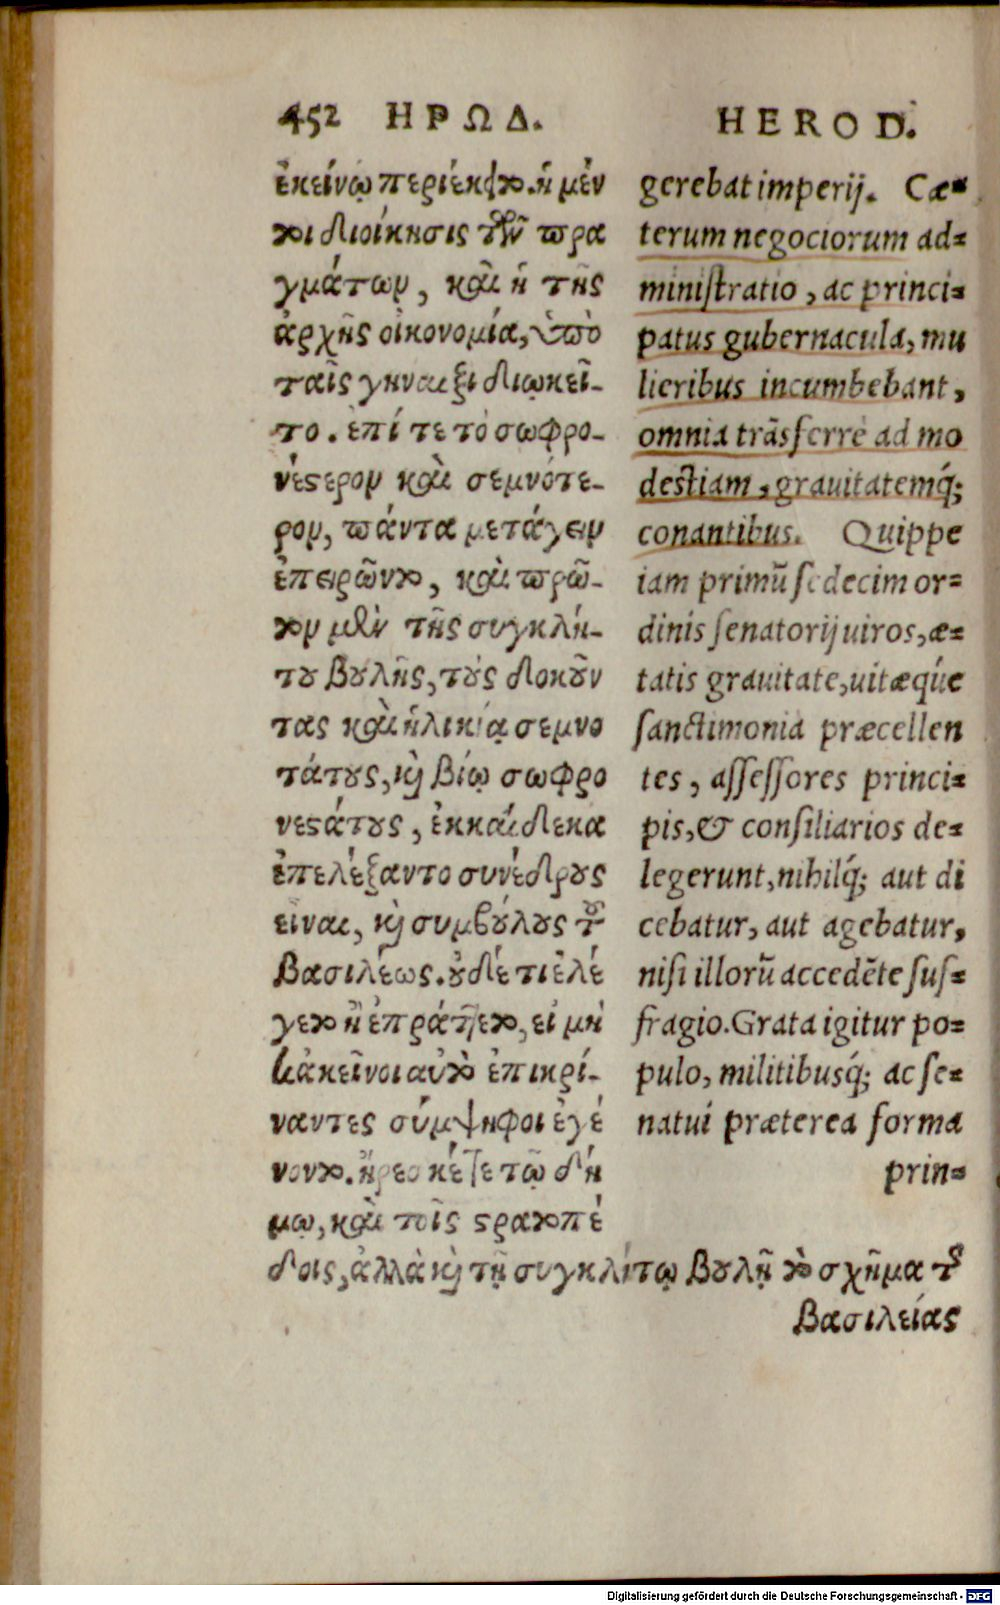 452 ΗΡΩΔ.
ἐκείνῳ περιέκειτο. ἡ μέν
τοι διοίκησις τῶν πρα
γμάτων, καὶ ἡ τῆς
ἀρχῆς οἰκονομία, ὑπὸ
ταῖς γυναιξὶ διῳκεῖ-
το. ἐπί τε τὸ σωφρο-
νέστερον καὶ σεμνότε-
ρον, πάντα μετάγειν
ἐπειρῶντο, καὶ πρῶ-
τον μὲν τῆς συγκλή-
του βουλῆς, τοὺς δοκοῦν
τας καὶ ἡλικίᾳ σεμνο
τάτους, καὶ βίῳ σωφρο
νεστάτους, ἑκκαίδεκα
ἐπελέξαντο συνέδρους
εἶναι, καὶ συμβούλους τοῦ
βασιλέως. οὐδέ τι ἐλέ
γετο ἢ ἐπράττετο, εἰ μὴ
κἀκεῖνοι αὐτὸ ἐπικρί-
ναντες σύμψηφοι ἐγέ
νοντο. ἤρεσκέ τε τῷ δή
μῳ, καὶ τοῖς στρατοπέ
δοις, ἀλλὰ καὶ τῇ συγκλήτῳ βουλῇ τὸ σχῆμα τῆς
βασιλείας
HEROD.
gerebat imperij. Cæ-
terum negociorum ad-
ministratio, ac princi-
patus gubernacula, mu
lieribus incumbebant,
omnia trāsferre ad mo
destiam, grauitatemq́;
conantibus. Quippe
iam primū sedecim or-
dinis senatorij uiros, æ-
tatis grauitate, uitæq́ue
sanctimonia præcellen
tes, assessores princi-
pis, & consiliarios de-
legerunt, nihilq́; aut di
cebatur, aut agebatur,
nisi illorū accedēte suf-
fragio. Grata igitur po-
pulo, militibusq́; ac se-
natui præterea forma
prin-
Digitalisierung gefördert durch die Deutsche Forschungsgemeinschaft - DFG